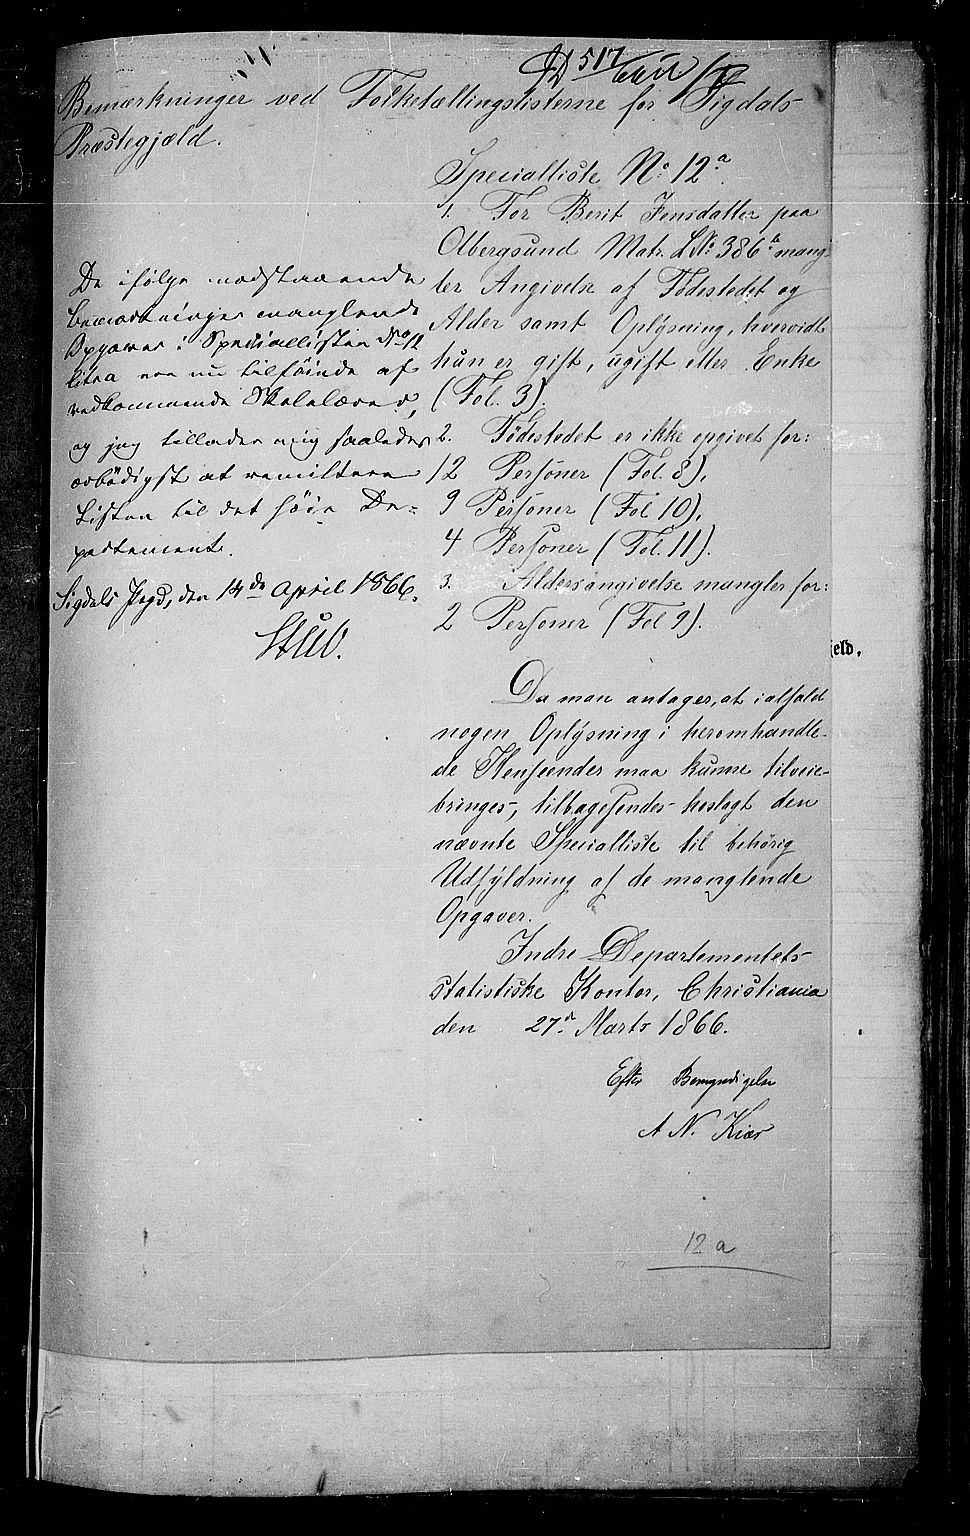 517
Bemærkninger ved Folketællingslisterne for Sigdals
Præstegjæld.
Specialliste No. 12a.
1. For Berit Jensdatter paa
Albergsund Matr. LNo. 386a mang-
ler Angivelse af Fødestedet og
Alder samt Oplysning, hvorvidt
hun er gift, ugift eller Enke
(Fol. 3).
2. Fødestedet er ikke opgivet for:
12 Personer (Fol. 8),
9 Personer (Fol 10),
4 Personer (Fol. 11).
3. Aldersangivelse mangler for:
2 Personer (Fol 9).
Da man antager, at ialfald
nogen Oplysning i heromhandle-
de Henseender maa kunne tilveie-
bringes, tilbagesendes heslagt den
nævnte Specialliste til behørig
Udfyldning af de manglende
Opgaver.
Indre Departementets
statistiske Kontor, Christiania
den 27de Marts 1866.
Efter Bemyndigelse
A N. Kiær
De ifølge modstaaende
bemærkninger manglende
Opgaver i Speciallisten No 12
litra a er nu tilføiede af
vedkommende Skolelærer,
og jeg tillader mig saaledes
ærbødigst at remittere
Listen til det høie De-
partement.
Sigdals Pgd, den 14de April 1866.
Stub.
jeld.
12 a